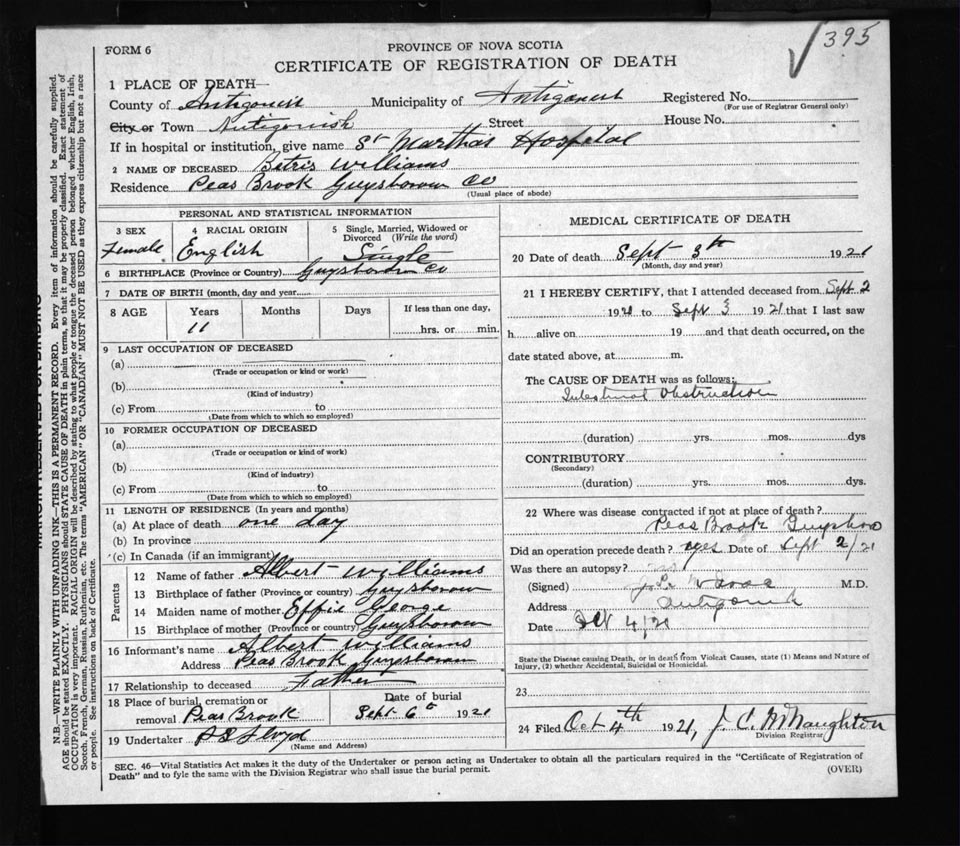 395
FORM 6
PROVINCE OF NOVA SCOTIA
CERTIFICATE OF REGISTRATION OF DEATH
1 PLACE OF DEATH—
County of Antigonish Municipality of Antigonish Registered No.
(For use of Registrar General only)
City or Town Antigonish Street House No.
If in hospital or institution, give name St Marthas Hospital
2 NAME OF DECEASED Betris Williams
Residence Peas Brook Guysborown Co
(Usual place of abode)
PERSONAL AND STATISTICAL INFORMATION
3 SEX 4 RACIAL ORIGIN 5 Single, Married, Widowed or Divorced (Write the word)
Female English Single
6 BIRTHPLACE (Province or Country) Guysborown Co
7 DATE OF BIRTH (month, day and year)
8 AGE Years Months Days If less than one day,
11 hrs. or min.
9 LAST OCCUPATION OF DECEASED
(a)
(Trade or occupation or kind of work)
(b)
(Kind of industry)
(c) From to
(Date from which to which so employed)
10 FORMER OCCUPATION OF DECEASED
(a)
(Trade or occupation or kind of work)
(b)
(Kind of industry)
(c) From to
(Date from which to which so employed)
11 LENGTH OF RESIDENCE (In years and months)
(a) At place of death one day
(b) In province
(c) In Canada (if an immigrant)
Parents
12 Name of father Albert Williams
13 Birthplace of father (Province or country) Guysborown
14 Maiden name of mother Effie George
15 Birthplace of mother (Province or country) Guysborown
16 Informant's name Albert Williams
Address Peas Brook Guysborown
17 Relationship to deceased Father
18 Place of burial, cremation or removal Peas Brook Date of burial Sept 6th 1921
19 Undertaker Floyd
(Name and Address)
MEDICAL CERTIFICATE OF DEATH
20 Date of death Sept 3th 1921
(Month, day and year)
21 I HEREBY CERTIFY, that I attended deceased from Sept 2
1921 to Sept 3 1921 that I last saw
h alive on 19 and that death occurred, on the
date stated above, at m.
The CAUSE OF DEATH was as follows:
Intestinal Obstruction
(duration) yrs. mos. dys
CONTRIBUTORY
(Secondary)
(duration) yrs. mos. dys.
22 Where was disease contracted if not at place of death?
Peas Brook Guysboro
Did an operation precede death? yes Date of Sept 2/21
Was there an autopsy? no
(Signed) M.D.
Address Antigonish
Date Oct 4/21
State the Disease causing Death, or in death from Violent Causes, state (1) Means and Nature of
Injury, (2) whether Accidental, Suicidal or Homicidal.
23
24 Filed Oct 4th 1921, J. C. McNaughton
Division Registrar
SEC. 46—Vital Statistics Act makes it the duty of the Undertaker or person acting as Undertaker to obtain all the particulars required in the "Certificate of Registration of
Death" and to fyle the same with the Division Registrar who shall issue the burial permit.
(OVER)
MARGIN RESERVED FOR BINDING
N.B.—WRITE PLAINLY WITH UNFADING INK—THIS IS A PERMANENT RECORD. Every item of information should be carefully supplied.
AGE should be stated EXACTLY. PHYSICIANS should STATE CAUSE OF DEATH in plain terms, so that it may be properly classified. Exact statement of
OCCUPATION is very important. RACIAL ORIGIN will be described by stating to what people or tongue the deceased person belonged whether English, Irish,
Scotch, French, German, Russian, Ruthenian, etc. The terms "AMERICAN" OR "CANADIAN" MUST NOT BE USED as they express citizenship but not a race
or people. See instructions on back of Certificate.